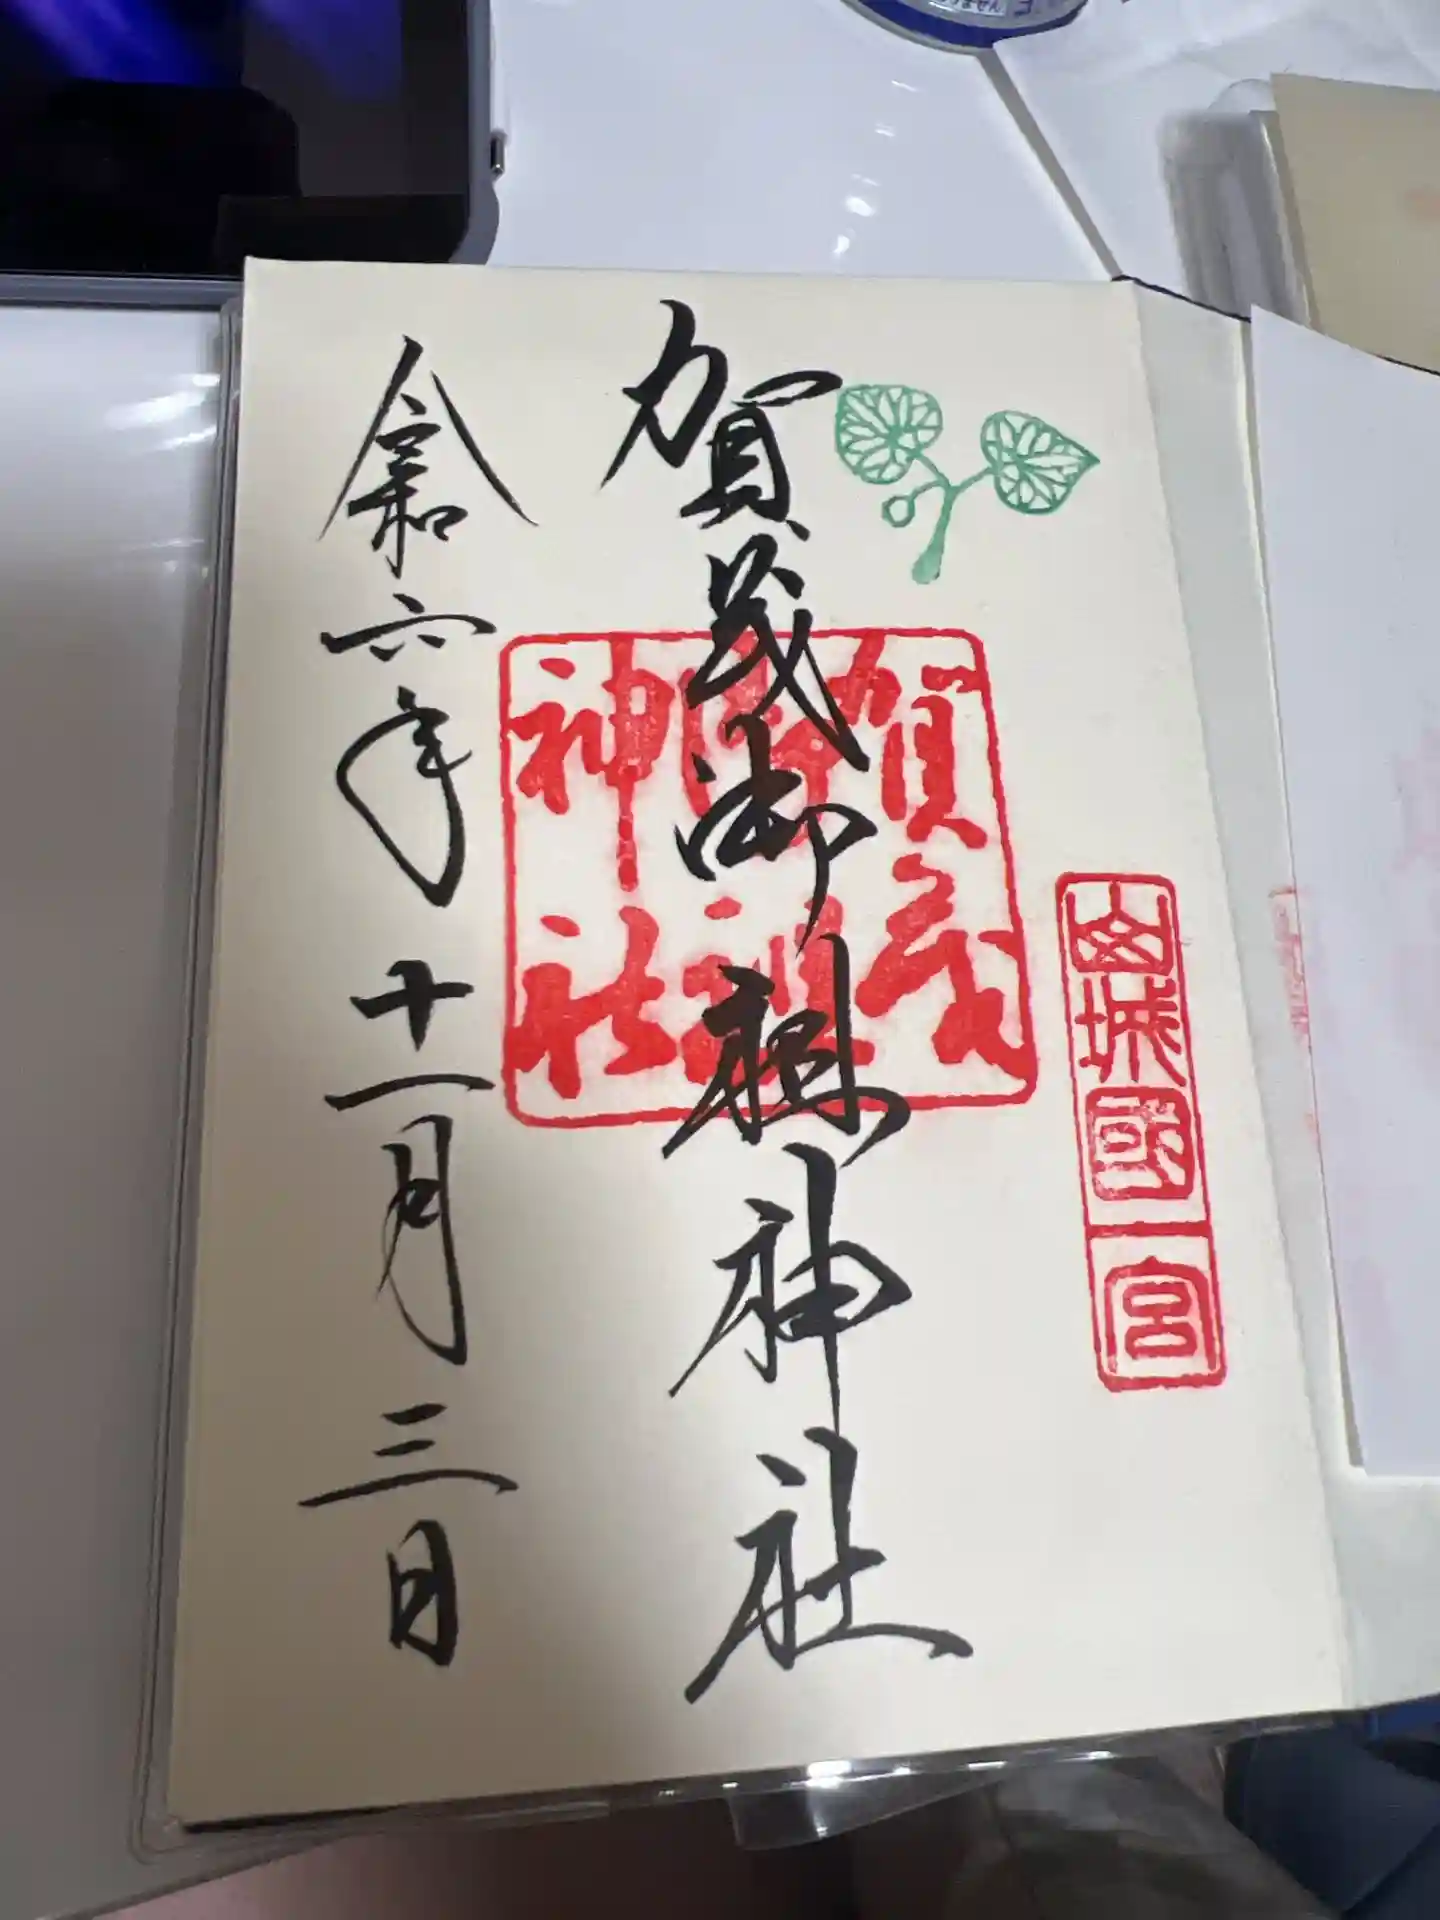 山城國一宮
賀茂御祖神社
賀茂
御祖
神社
令和六年十一月三日